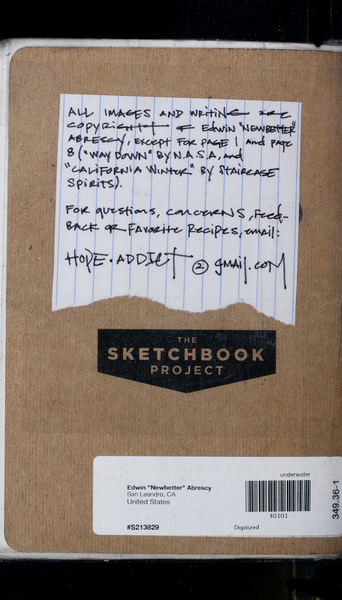 ALL IMAGES AND WRITING ARE
COPYRIGHT OF EDWIN "NEWBETTER"
ABRESCY, EXCEPT FOR PAGE 1 and PAGE
8 ("WAY DOWN" BY N.A.S.A, and
"CALIFORNIA WINTER" BY STAIRCASE
SPIRITS).
FOR questions, concerns, FEED-
BACK OR FAVORITE RECIPES, email:
HOPE.ADDICT @ gmail.com
THE
SKETCHBOOK
PROJECT
underwater
Edwin "Newbetter" Abrescy
San Leandro, CA
United States
40101
#S213829
Digitized
349.36-1